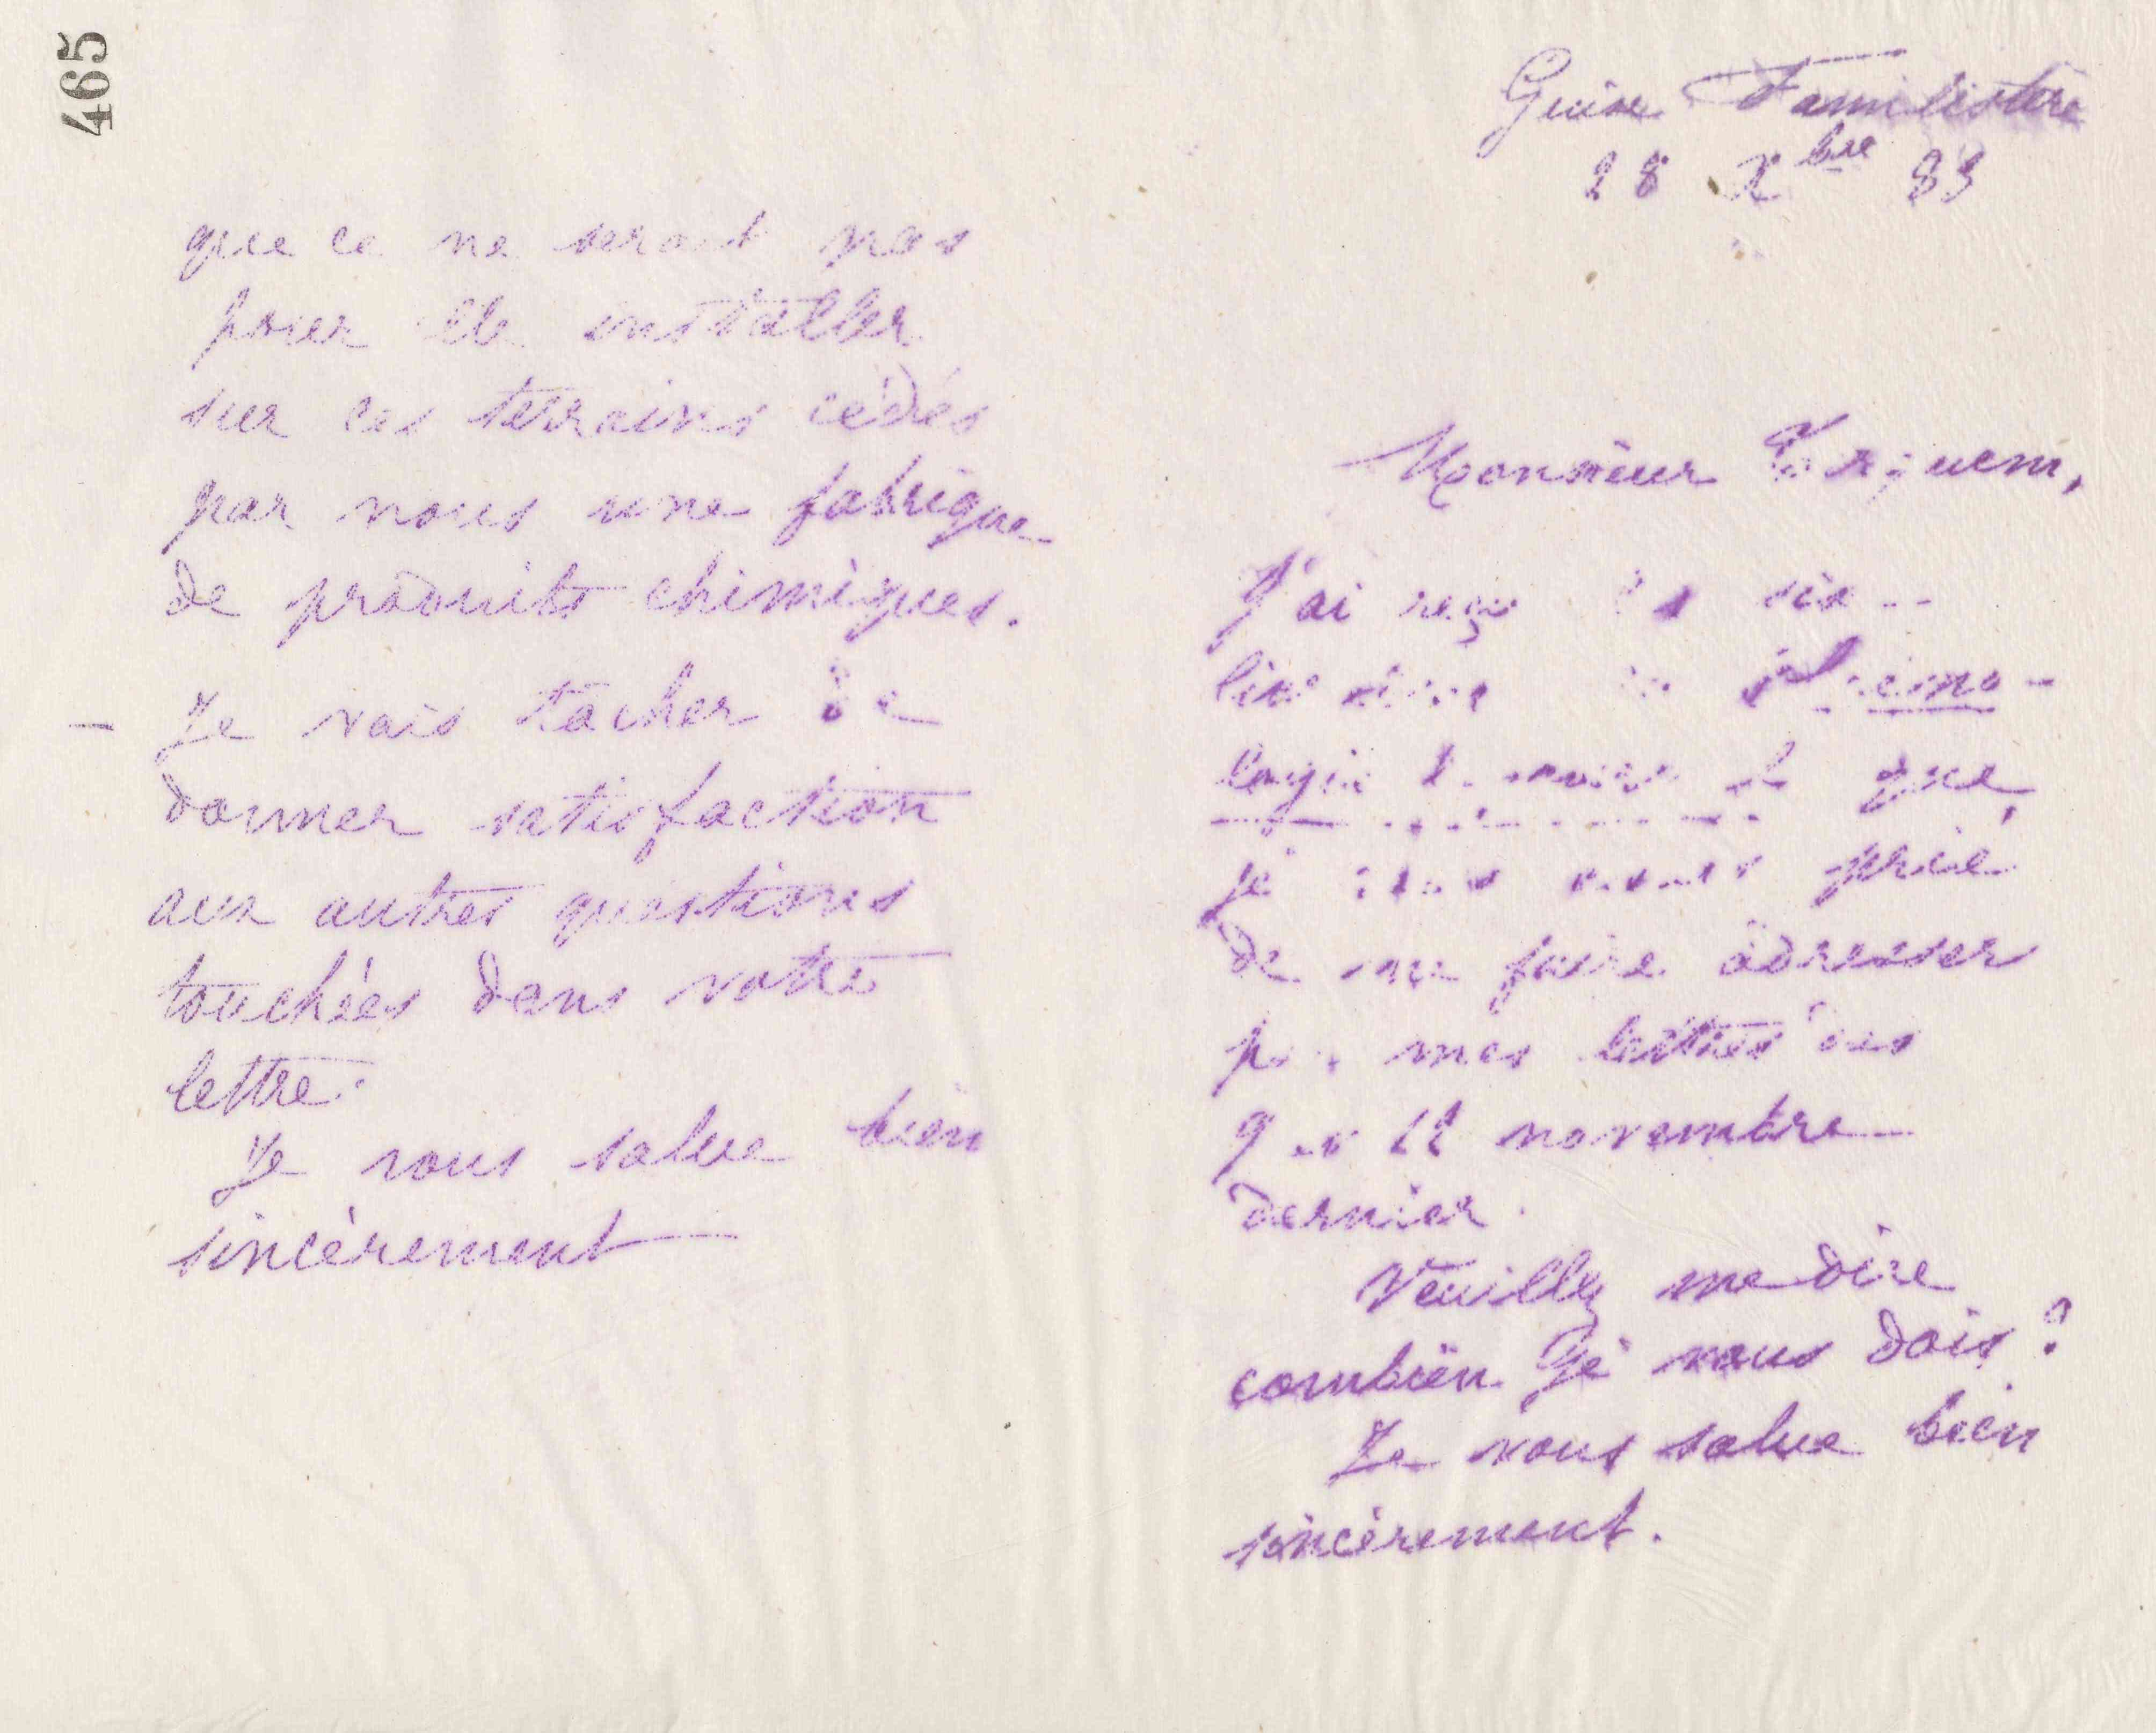 465
que ce ne serait pas
pour y installer
sur ces terrains cédés
par nous une fabrique
de produits chimiques.
— Je vais tâcher de
donner satisfaction
aux autres questions
touchées dans votre
lettre.
Je vous salue bien
sincèrement
Guise Familistère
28 Xbre 83
Monsieur
J'ai reçu six
que
je vous avais prié
de me faire adresser
par mes lettres des
9 et 12 novembre
dernier.
Veuillez me dire
combien je vous dois ?
Je vous salue bien
sincèrement.